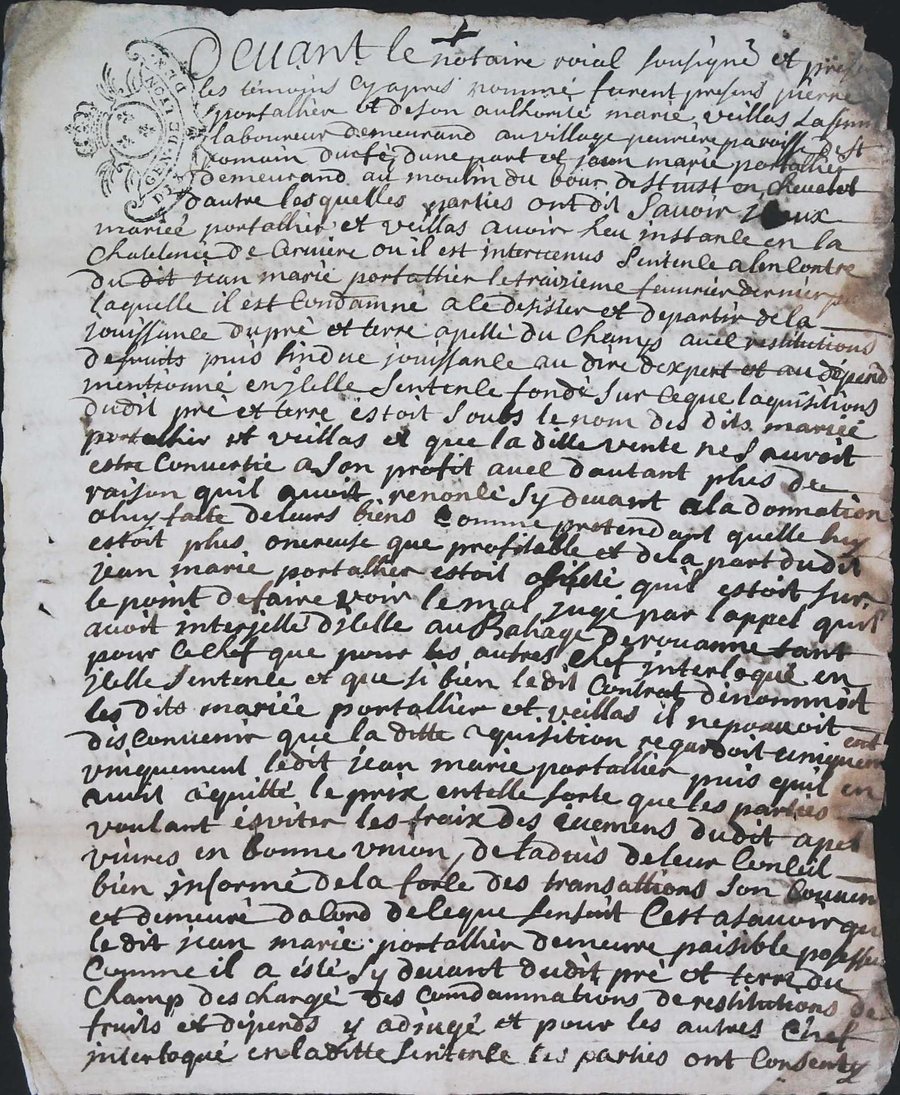 GEN. DE LYON DEUX
Devant le notaire roial sousigné et pres
les témoins cy apres nommé furent presens pierre
portallier et de son authorité marie veillas sa fem
laboureur demeurand au village paroisse de st
romain durfé, d'une part et jean marie portallier
demeurand au moulin du bour de st just en chevalet
d'autre lesquelles parties ont dit savoir iceux
mariéé portallier et veillas avoir heu instance en la
chatelenie de Cerviere ou il est intervenus sentence alencontre
dudit jean marie portallier le traizieme feuvrier dernier par
laquelle il est Condamné a se desister et departir de la
jouissance du pré et terre apellé du Champ avec restitutions
de fruits puis lindue jouissance au dire dexpert et au depend
mentionné en jcelle sentence fondé sur ce que laquisitions
dudit pré et terre estoit sous le nom des dits mariéé
portallier et veillas et que la ditte vente ne sauroit
estre Convertie a son profit avec dautant plus de
raison quil avoit renoncé sy devant a la donnation
a luy faite de leurs biens Comme pretendant quelle luy
estoit plus onereuse que profitable et de la part dudit
jean marie portallier estoit quil estoit sur
le point de faire voir le mal jugé par lappel quil
avoit interjetté djcelle au Bahage de rouanne tant
pour ce chef que pour les autres chef interloqué en
jcelle sentence et que si bien ledit Contrat denommoit
les dits mariéé portallier et veillas il ne pouvoit
disconvenir que la ditte aquisition regardoit uniquem
vniquement ledit jean marie portallier puis quil en
avoit aquitté le prix en telle sorte que les parties
voulant esviter les fraix des evemens dudit apel
vivres en bonne vnion, de ladvis de leur Conseil
bien informé de la force des transactions son Conven
et demeuré dacord de ce que sensuit Cest a savoir que
ledit jean marie portallier demeure paisible posesseu
Comme il a ésté sy devant dudit pré et terre du
champ deschargé des Comdamnations de restitutions de
fruits et dépends y adjugé et pour les autres Chef
interloqué en laditte sentence les parties ont Consenty